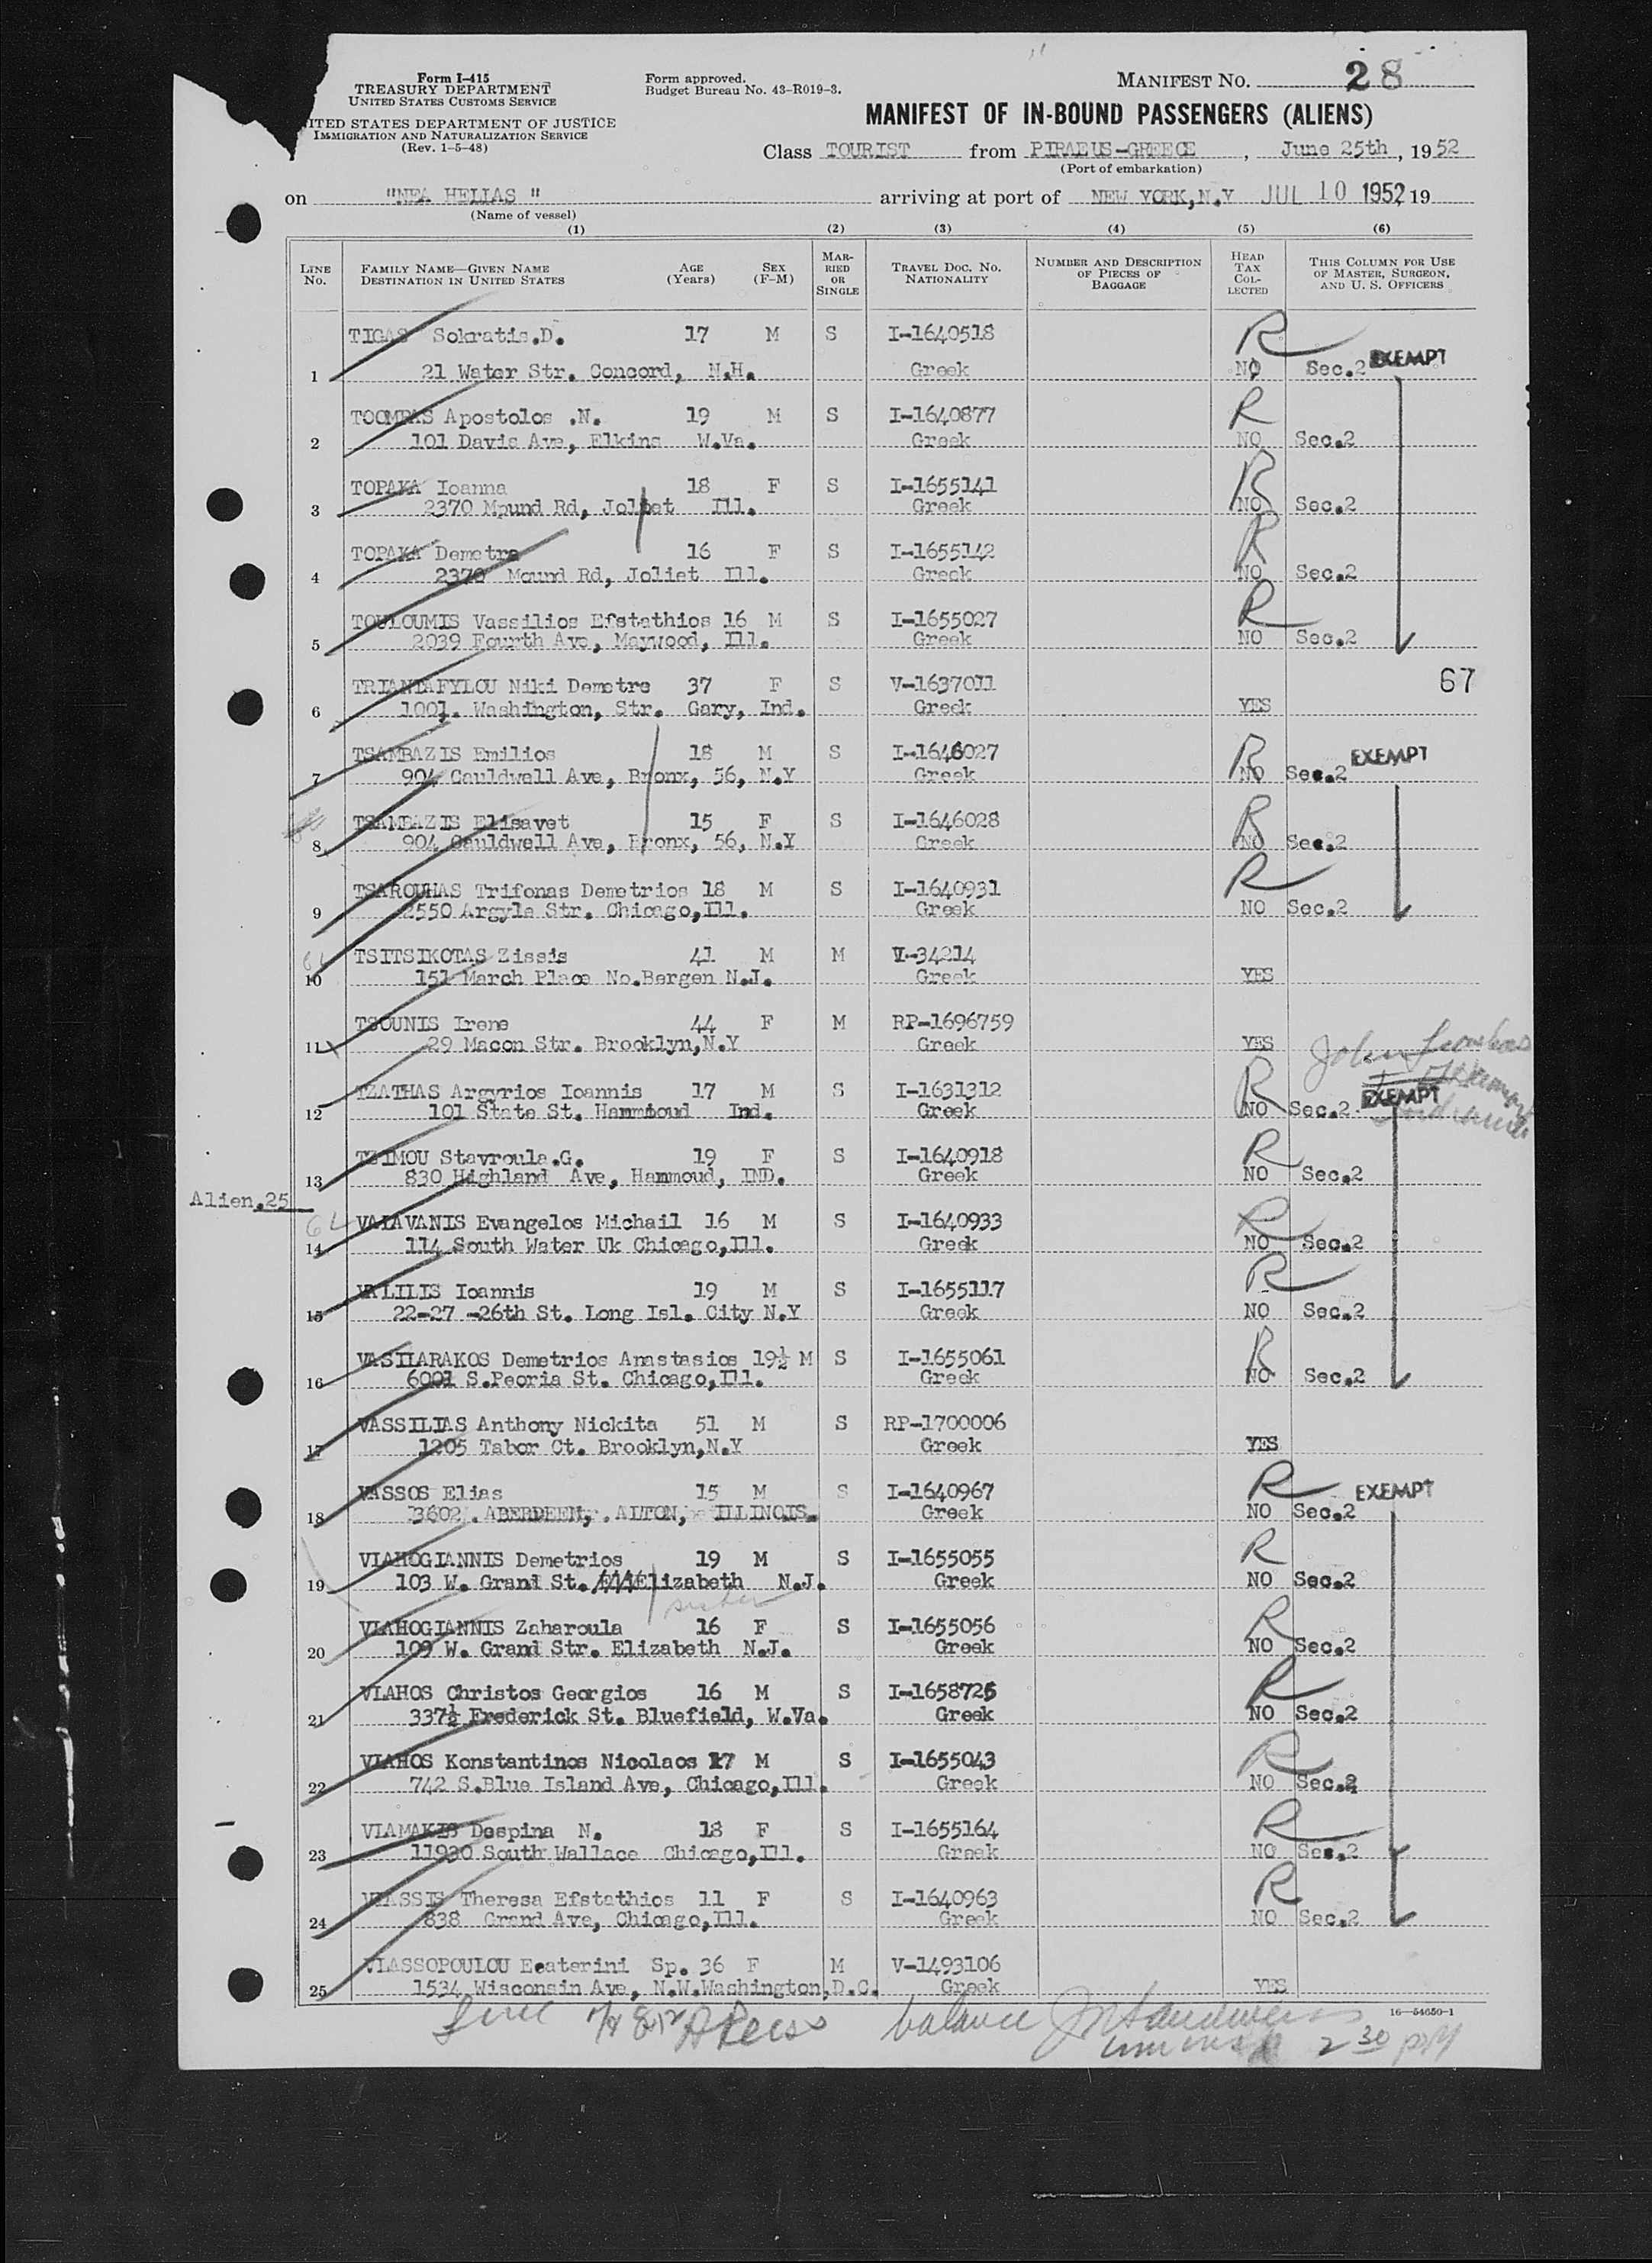 Form I-415
TREASURY DEPARTMENT
UNITED STATES CUSTOMS SERVICE
ITED STATES DEPARTMENT OF JUSTICE
IMMIGRATION AND NATURALIZATION SERVICE
(Rev. 1-5-48)
Form approved.
Budget Bureau No. 43-R019-3.
MANIFEST NO. 28
MANIFEST OF IN-BOUND PASSENGERS (ALIENS)
Class TOURIST from PIRAEUS-GREECE, June 25th, 1952
(Port of embarkation)
on "NEA HELIAS" arriving at port of NEW YORK, N.Y JUL 10 1952 19
(Name of vessel)
(1) (2) (3) (4) (5) (6)
LINE No. FAMILY NAME—GIVEN NAME DESTINATION IN UNITED STATES AGE (Years) SEX (F-M) MARRIED OR SINGLE TRAVEL DOC. NO. NATIONALITY NUMBER AND DESCRIPTION OF PIECES OF BAGGAGE HEAD TAX COLLECTED THIS COLUMN FOR USE OF MASTER, SURGEON, AND U. S. OFFICERS
TIGAS Sokratis.D. 17 M S I-1640518 R
1 21 Water Str. Concord, N.H. Greek NO Sec.2 EXEMPT
TOOMPAS Apostolos .N. 19 M S I-1640877 R
2 101 Davis Ave, Elkins W.Va. Greek NO Sec.2
TOPAKA Ioanna 18 F S I-1655141 R
3 2370 Mound Rd, Joliet Ill. Greek NO Sec.2
TOPAKA Demetra 16 F S I-1655142 R
4 2370 Mound Rd, Joliet Ill. Greek NO Sec.2
TOULOUMIS Vassilios Efstathios 16 M S I-1655027 R
5 2039 Fourth Ave, Maywood, Ill. Greek NO Sec.2
TRIANTAFYLOU Niki Demetre 37 F S V-1637011 67
6 1001. Washington, Str. Gary, Ind. Greek YES
TSAMBAZIS Emilios 18 M S I-1646027 R EXEMPT
7 904 Cauldwell Ave, Bronx, 56, N.Y Greek NO Sec.2
TSAMBAZIS Elisavet 15 F S I-1646028 R
8 904 Cauldwell Ave, Bronx, 56, N.Y Greek NO Sec.2
TSAROUHAS Trifonas Demetrios 18 M S I-1640931 R
9 2550 Argyle Str. Chicago,Ill. Greek NO Sec.2
TSITSIKOTAS Zissis 41 M M V-34214
10 151 March Place No.Bergen N.J. Greek YES
TSOUNIS Irene 44 F M RP-1696759
11 29 Macon Str. Brooklyn,N.Y Greek YES John
TZATHAS Argyrios Ioannis 17 M S I-1631312 R EXEMPT
12 101 State St. Hammoud Ind. Greek NO Sec.2
TZIMOU Stavroula.G. 19 F S I-1640918 R
13 830 Highland Ave, Hammoud, IND. Greek NO Sec.2
Alien.25
VALAVANIS Evangelos Michail 16 M S I-1640933 R
14 114 South Water Uk Chicago,Ill. Greek NO Sec.2
VALILIS Ioannis 19 M S I-1655117 R
15 22-27 -26th St. Long Isl. City N.Y Greek NO Sec.2
VASILARAKOS Demetrios Anastasios 19½ M S I-1655061 R
16 6001 S.Peoria St. Chicago,Ill. Greek NO Sec.2
VASSILIAS Anthony Nickita 51 M S RP-1700006
17 1205 Tabor Ct. Brooklyn,N.Y Greek YES
VASSOS Elias 15 M S I-1640967 R EXEMPT
18 3602 . ABERDEEN, . ALTON, ILLINOIS. Greek NO Sec.2
VLAHOGIANNIS Demetrios 19 M S I-1655055 R
19 103 W. Grand St. Elizabeth N.J. Greek NO Sec.2
sister
VLAHOGIANNIS Zaharoula 16 F S I-1655056 R
20 109 W. Grand Str. Elizabeth N.J. Greek NO Sec.2
VLAHOS Christos Georgios 16 M S I-1658725 R
21 337½ Frederick St. Bluefield, W.Va. Greek NO Sec.2
VLAHOS Konstantinos Nicolaos 17 M S I-1655043 R
22 742 S.Blue Island Ave, Chicago,Ill. Greek NO Sec.2
VLAMAKIS Despina N. 18 F S I-1655164 R
23 11930 South Wallace Chicago,Ill. Greek NO Sec.2
VLASSIS Theresa Efstathios 11 F S I-1640963 R
24 838 Grand Ave, Chicago,Ill. Greek NO Sec.2
VLASSOPOULOU Ecaterini Sp. 36 F M V-1493106
25 1534 Wisconsin Ave, N.W.Washington,D.C. Greek YES
16—54650-1
balance
2 30 PM